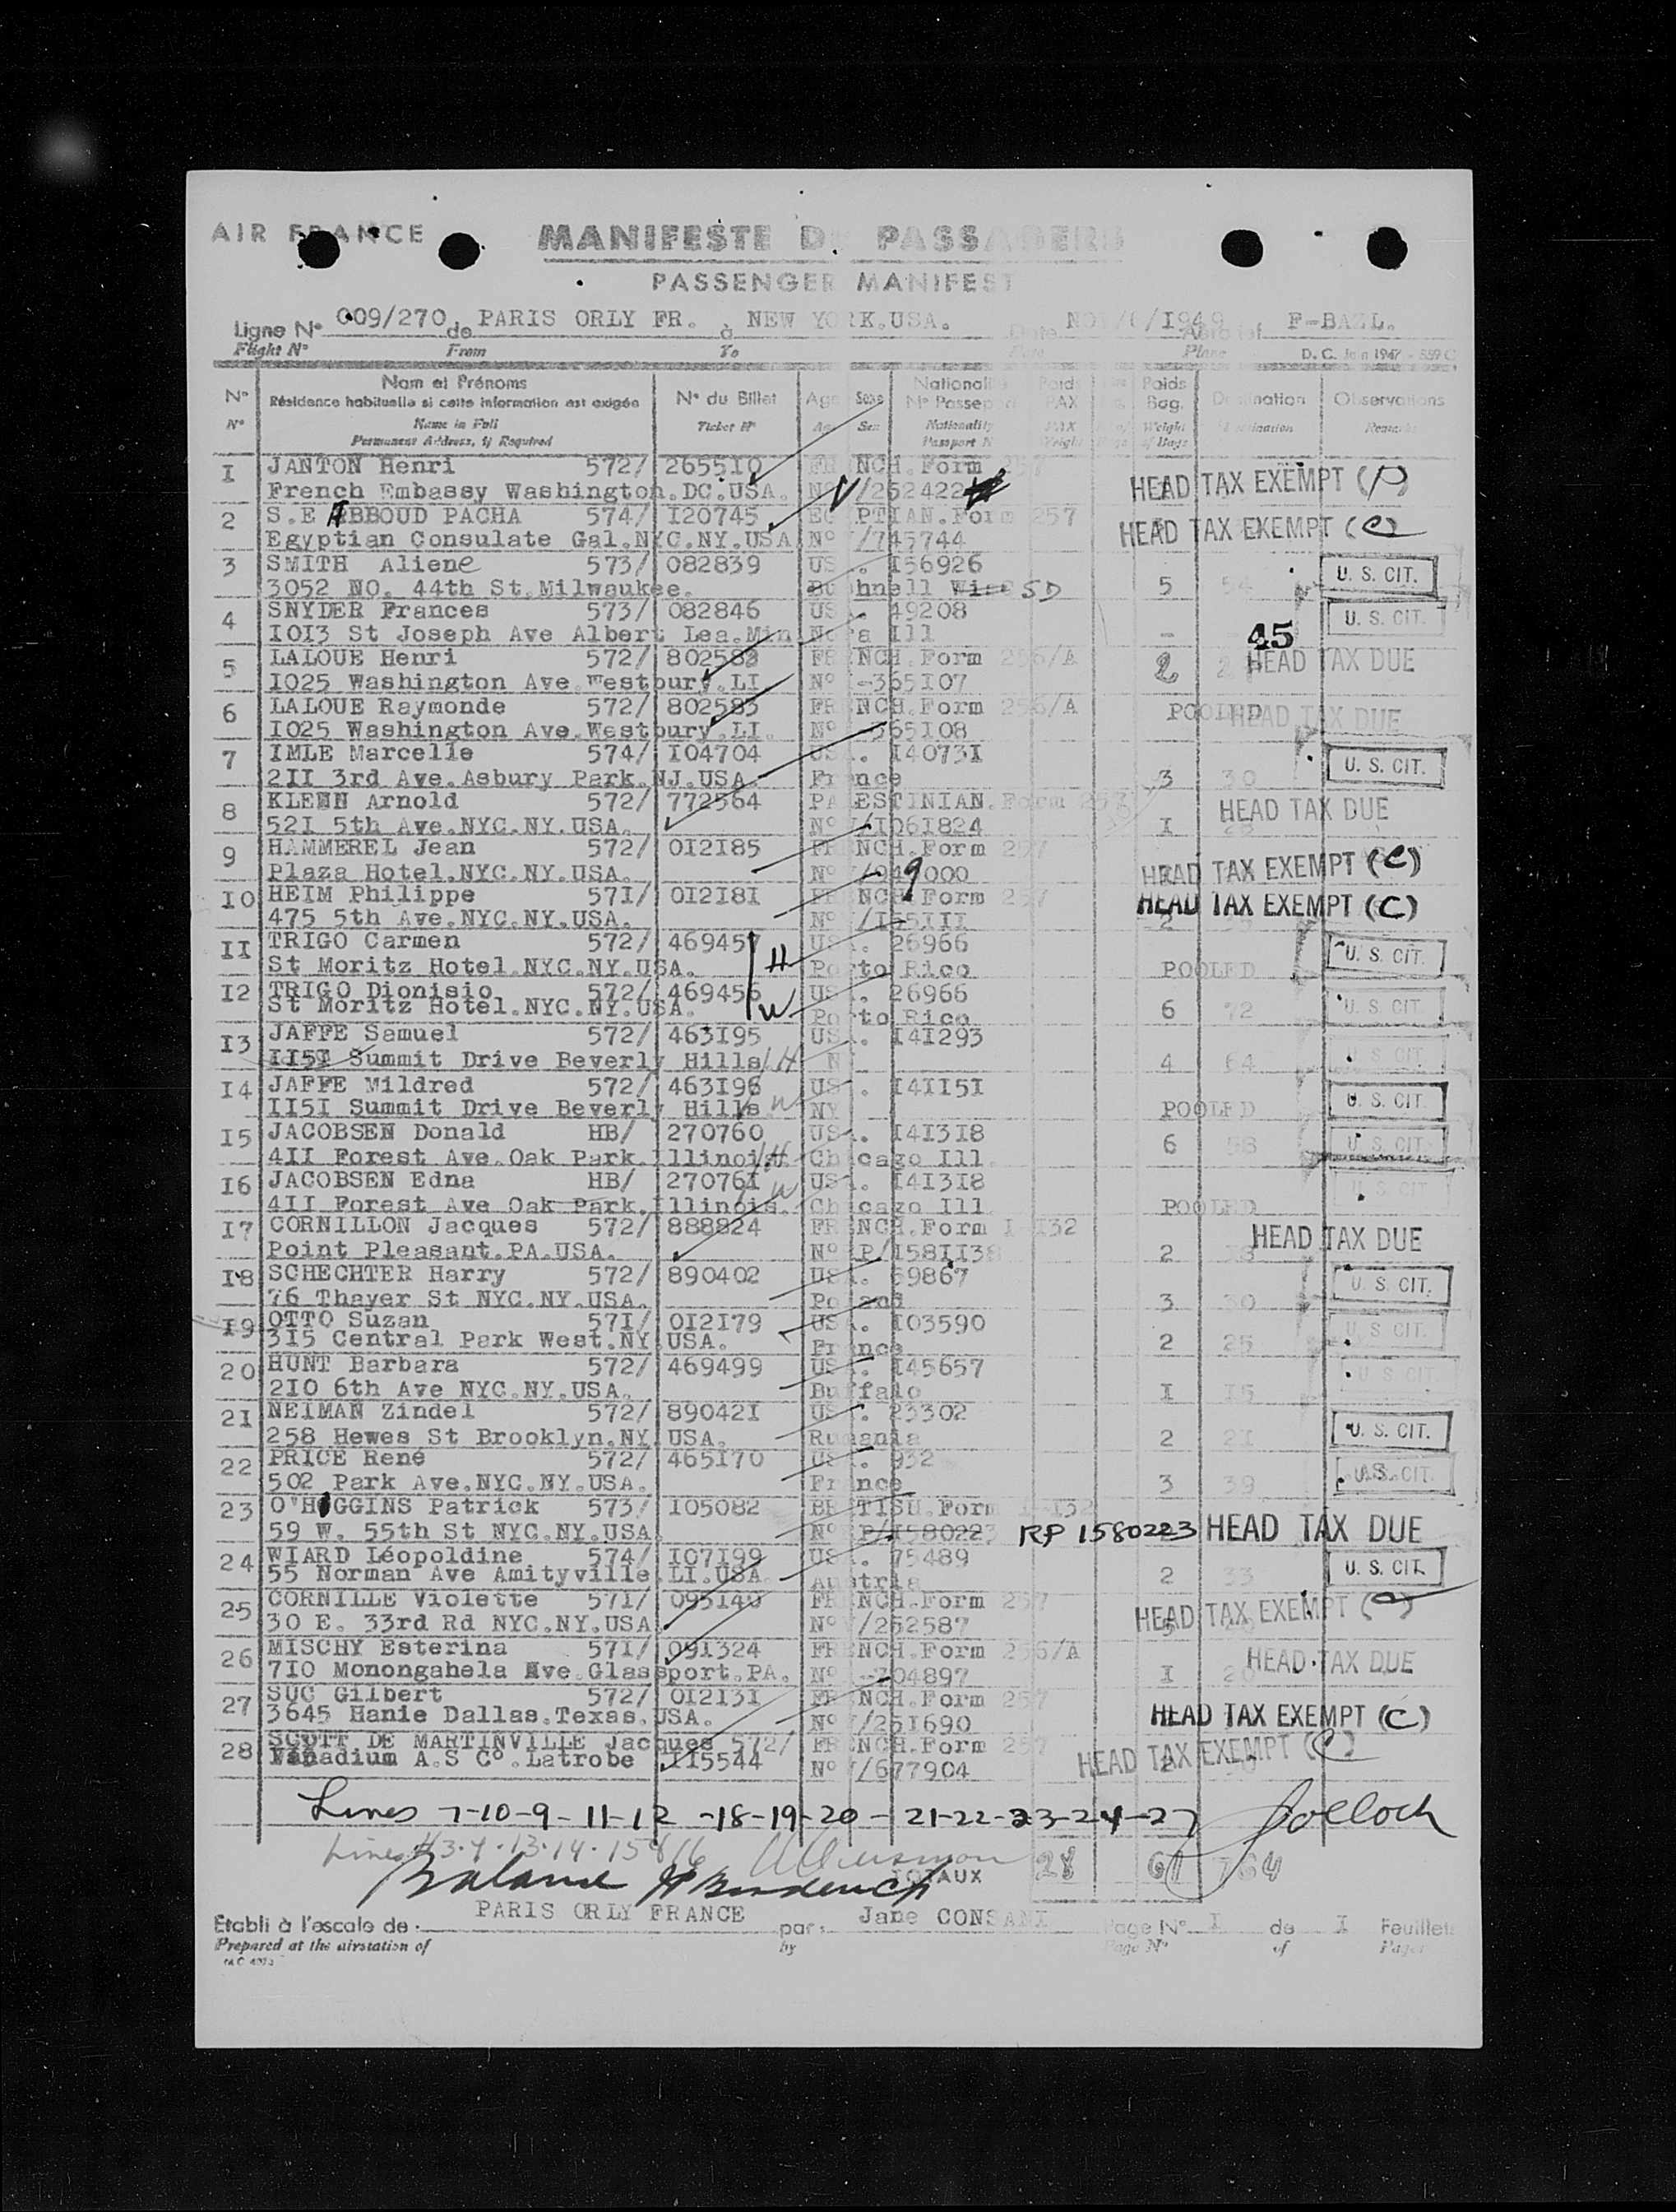 AIR FRANCE
MANIFESTE DE PASSAGERS
PASSENGER MANIFEST
Ligne N° 009/270 de PARIS ORLY FR. à NEW YORK.USA. Date /1949 F-BAZL.
Flight N° From To Date Plane D.C. Jan 1947 -
N° Nom et Prénoms N° du Billet Age Sexe Nationalité Poids Poids Destination Observations
Résidence habituelle si cette information est exigée N° Passeport PAX Bag.
N° Name in Full Ticket N° Sex Nationality PAX Weight Destination Remarks
Permanent Address, if Required Passport N° Weight of Bags
I JANTON Henri 572/ 265510 FRENCH.Form 257
French Embassy Washington.DC.USA. N° V/252422 HEAD TAX EXEMPT (P)
2 S.E ABBOUD PACHA 574/ I20745 EGYPTIAN.Form 257
Egyptian Consulate Gal.NYC.NY.USA N° /745744 HEAD TAX EXEMPT (C)
3 SMITH Aliene 573/ 082839 USA. I56926 U. S. CIT.
3052 NO. 44th St.Milwaukee. Bushnell SD 5 54
4 SNYDER Frances 573/ 082846 USA. 49208 U. S. CIT.
IOI3 St Joseph Ave Albert Lea.Min Nora Ill - 45
5 LALOUE Henri 572/ 802583 FRENCH.Form 256/A HEAD TAX DUE
I025 Washington Ave.Westbury.LI N° -365I07 2
6 LALOUE Raymonde 572/ 802585 FRENCH.Form 256/A POOLED HEAD TAX DUE
I025 Washington Ave.Westbury.LI. N° 365I08
7 IMLE Marcelle 574/ I04704 USA. I4073I U. S. CIT.
2II 3rd Ave.Asbury Park.NJ.USA France 3 30
8 KLEMN Arnold 572/ 772564 PALESTINIAN.Form 257 HEAD TAX DUE
52I 5th Ave.NYC.NY.USA. N° /I06I824 I
9 HAMMEREL Jean 572/ 0I2I85 FRENCH.Form 257
Plaza Hotel.NYC.NY.USA. N° /049000 9 HEAD TAX EXEMPT (C)
I0 HEIM Philippe 57I/ 0I2I8I FRENCH.Form 257 HEAD TAX EXEMPT (C)
475 5th Ave.NYC.NY.USA. N° /I55III 2
II TRIGO Carmen 572/ 469457 USA. 26966 U. S. CIT.
St Moritz Hotel.NYC.NY.USA. H Porto Rico POOLED
I2 TRIGO Dionisio 572/ 469456 USA. 26966 U. S. CIT.
St Moritz Hotel.NYC.NY.USA. W Porto Rico 6 72
I3 JAFFE Samuel 572/ 463I95 USA. I4I293 U. S. CIT.
II5I Summit Drive Beverly Hills H N 4 64
I4 JAFFE Mildred 572/ 463I96 USA. I4II5I U. S. CIT.
II5I Summit Drive Beverly Hills W NY POOLED
I5 JACOBSEN Donald HB/ 270760 USA. I4I3I8 U. S. CIT.
4II Forest Ave.Oak Park.Illinois H Chicago Ill 6 58
I6 JACOBSEN Edna HB/ 27076I W USA. I4I3I8 U. S. CIT.
4II Forest Ave Oak Park.Illinois. Chicago Ill POOLED
I7 CORNILLON Jacques 572/ 888824 FRENCH.Form I I32 HEAD TAX DUE
Point Pleasant.PA.USA. N° RP/I58II38 2
I8 SCHECHTER Harry 572/ 890402 USA. 69867 U. S. CIT.
76 Thayer St NYC.NY.USA. Poland 3 30
I9 OTTO Suzan 57I/ 0I2I79 USA. I03590 U. S. CIT.
3I5 Central Park West.NY.USA. France 2 25
20 HUNT Barbara 572/ 469499 USA. I45657 U. S. CIT.
2I0 6th Ave NYC.NY.USA. Buffalo I I5
2I NEIMAN Zindel 572/ 89042I USA. 23302 U. S. CIT.
258 Hewes St Brooklyn.NY.USA. Rumania 2 2I
22 PRICE René 572/ 465I70 USA. 932 U. S. CIT.
502 Park Ave.NYC.NY.USA. France 3 39
23 O'HIGGINS Patrick 573/ I05082 BRITISH.Form I-I32
59 W. 55th St NYC.NY.USA. N° RP/I580223 RP 1580223 HEAD TAX DUE
24 WIARD Léopoldine 574/ I07I99 USA. 75489 U. S. CIT.
55 Norman Ave Amityville.LI.USA Austria 2 33
25 CORNILLE Violette 57I/ 095I40 FRENCH.Form 257
30 E. 33rd Rd NYC.NY.USA. N° /252587 HEAD TAX EXEMPT (C)
26 MISCHY Esterina 57I/ 09I324 FRENCH.Form 256/A HEAD TAX DUE
7I0 Monongahela Ave.Glassport.PA. N° -704897 I
27 SUC Gilbert 572/ 0I2I3I FRENCH.Form 257
3645 Hanie Dallas.Texas.USA. N° /25I690 HEAD TAX EXEMPT (C)
28 SCOTT DE MARTINVILLE Jacques 572/ FRENCH.Form 257
Vanadium A.S C°.Latrobe II5544 N° /677904 HEAD TAX EXEMPT (C)
Lines 7-10-9-11-12 -18-19-20- 21-22-23-24-27
Lines #3.4.13.14.15&16
Balance
TOTAUX 28 61 764
Etabli à l'escale de PARIS ORLY FRANCE par: Jane CONSANI Page N° I de I Feuillets
Prepared at the airstation of by Page N° of Pages